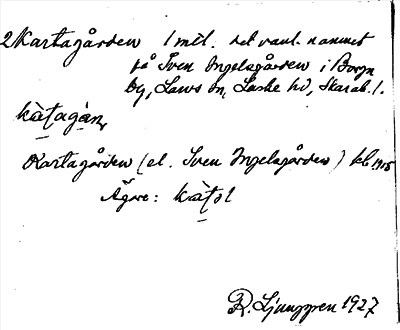 2 Kartagården 1 mtl. det vanl. namnet
på Sven Ingelsgården i Borgn
by, Lavs sn, Laske hd, Skarab. l.
kàtagàn,
Kartagården (el. Sven Ingelsgården) kb 1905
Ägare: kàtəl
R. Ljunggren 1927